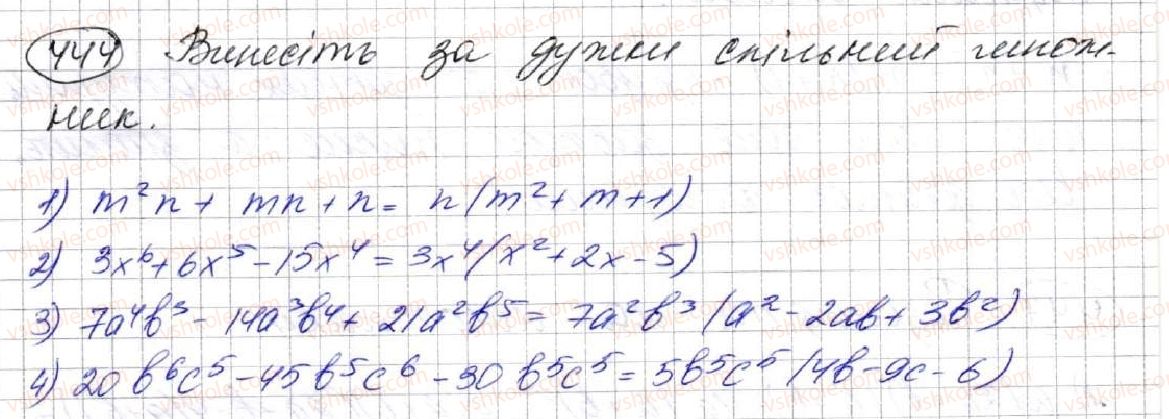 444 Винесіть за дужки спільний множ-
ник.
1) m²n + mn + n = n(m² + m + 1)
2) 3x⁶ + 6x⁵ - 15x⁴ = 3x⁴(x² + 2x - 5)
3) 7a⁴b³ - 14a³b⁴ + 21a²b⁵ = 7a²b³(a² - 2ab + 3b²)
4) 20b⁶c⁵ - 45b⁵c⁶ - 30b⁵c⁵ = 5b⁵c⁵(4b - 9c - 6)